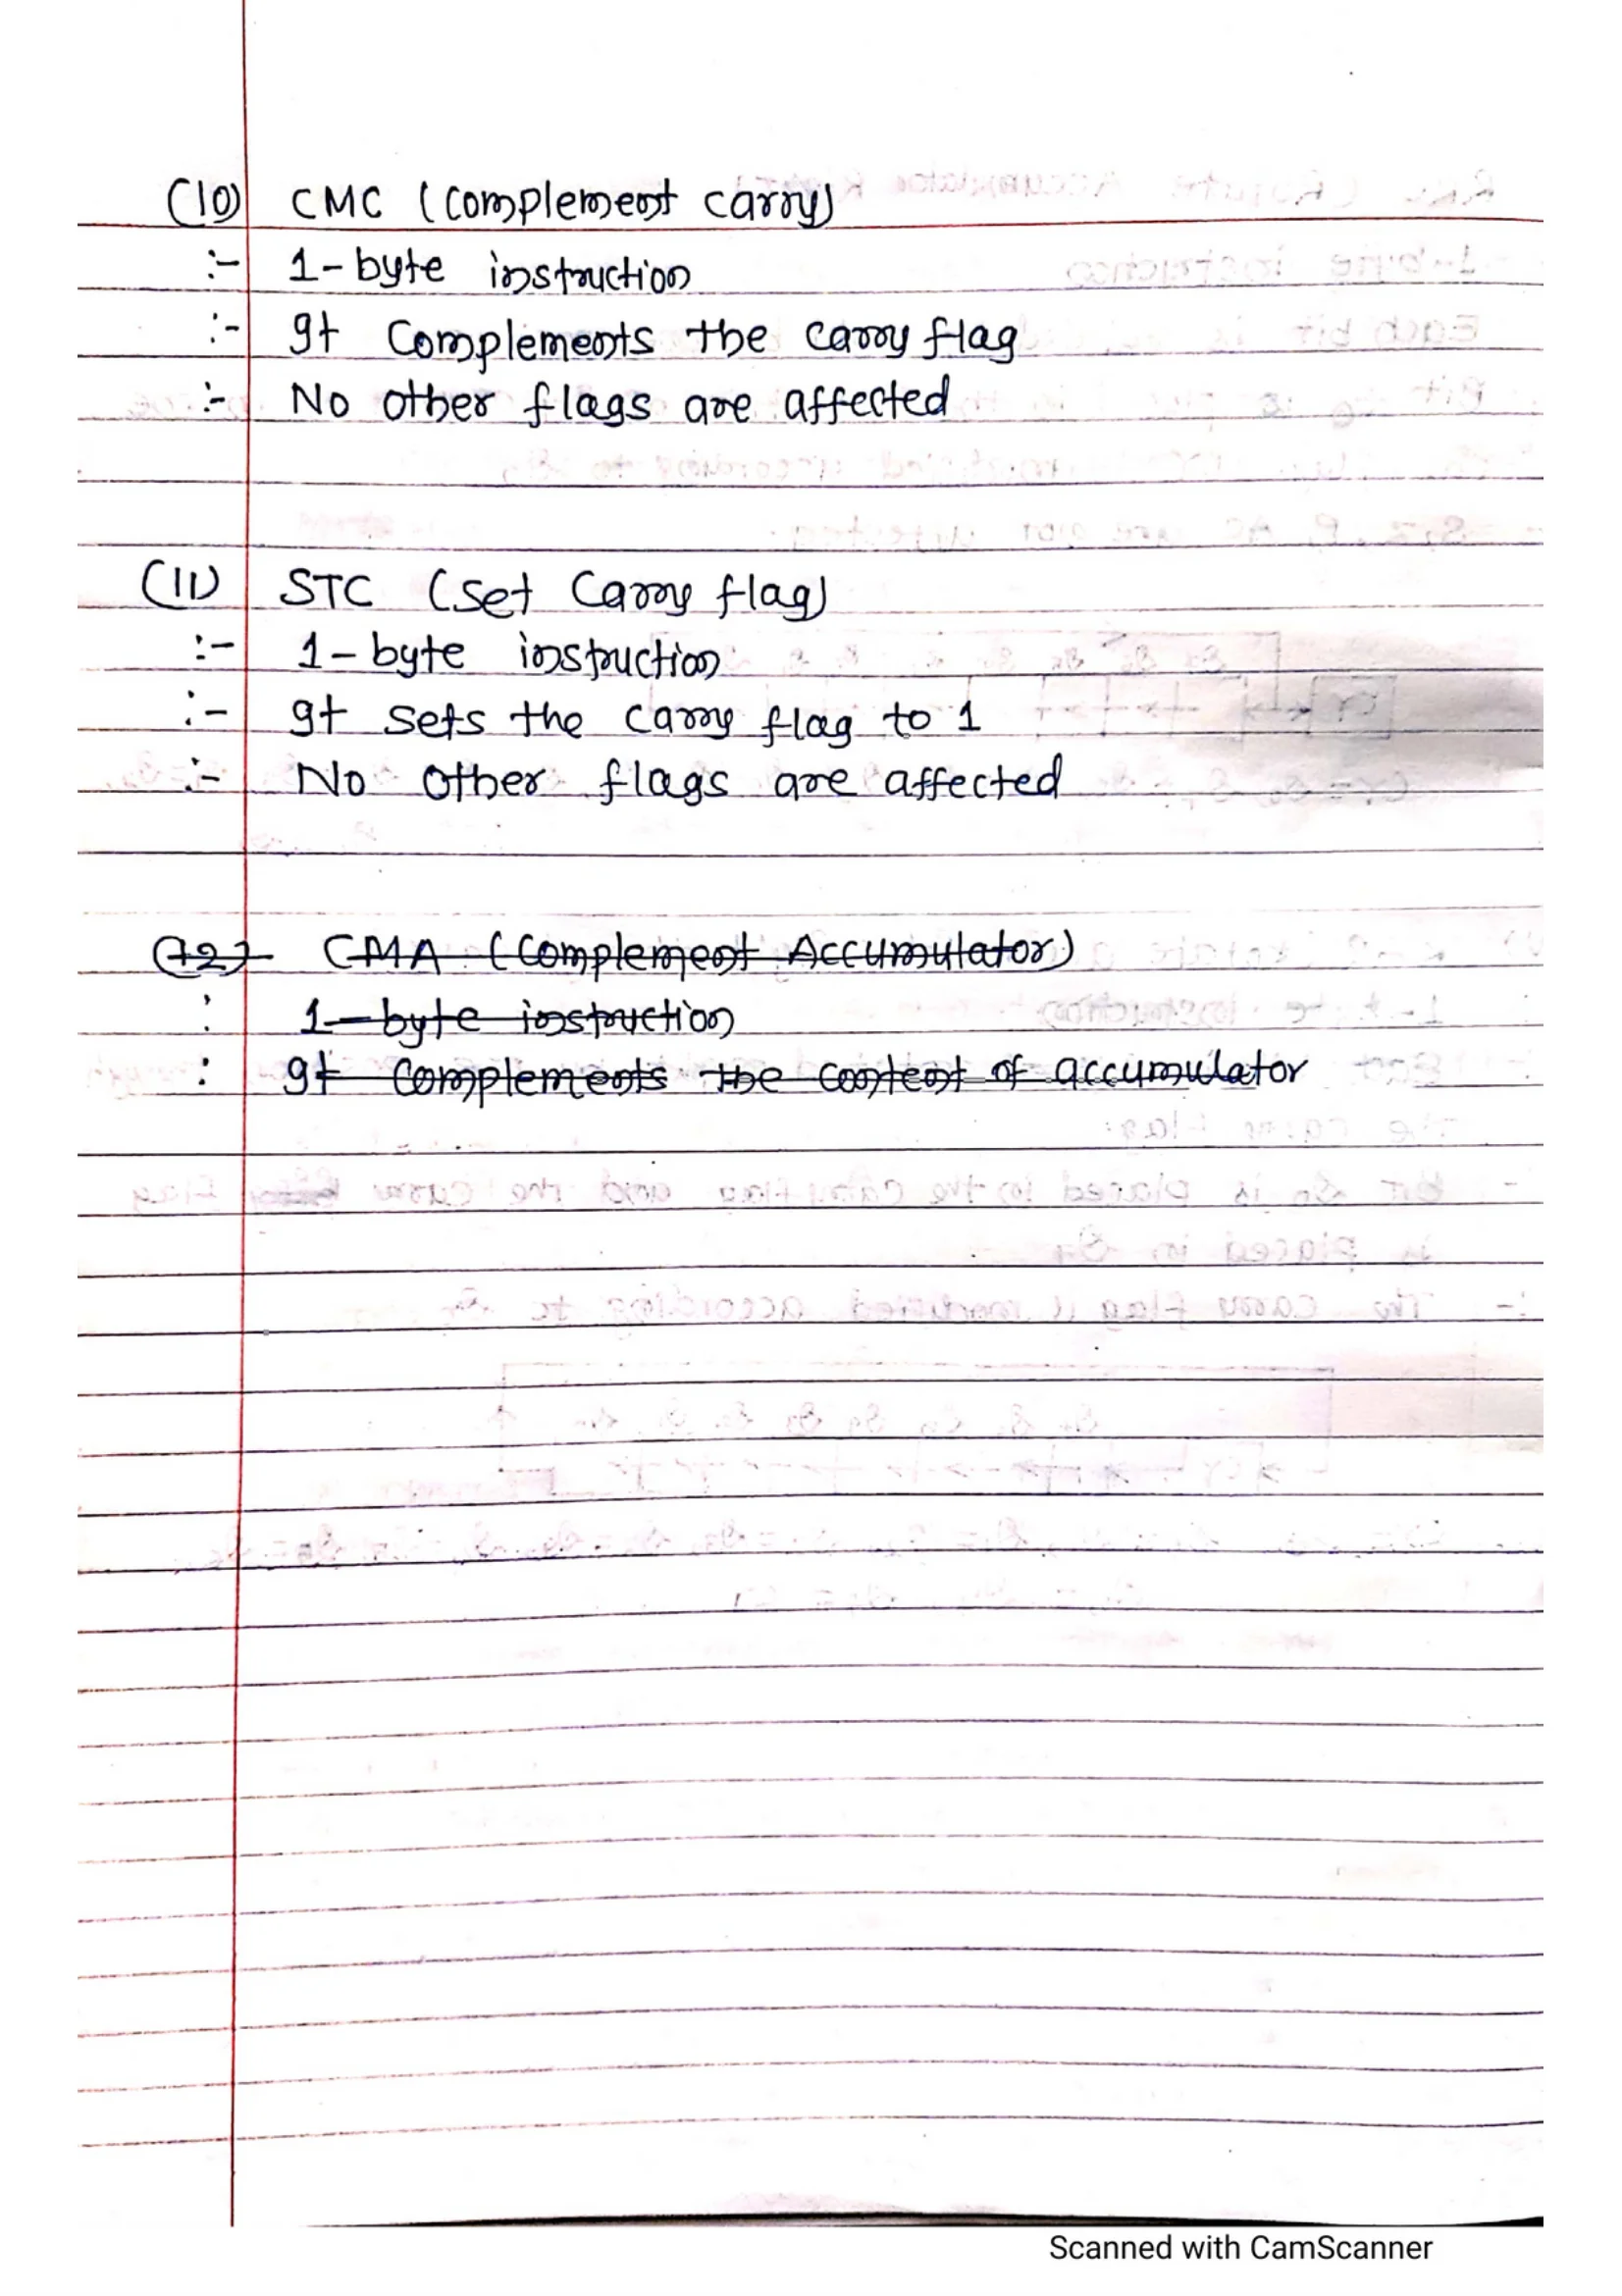 (10) CMC (complement carry)
:- 1-byte instruction
:- It Complements the carry flag
:- No other flags are affected
(11) STC (set Carry flag)
:- 1-byte instruction
:- It sets the carry flag to 1
:- No other flags are affected
(12) CMA (Complement Accumulator)
: 1-byte instruction
: It Complements the content of accumulator
Scanned with CamScanner